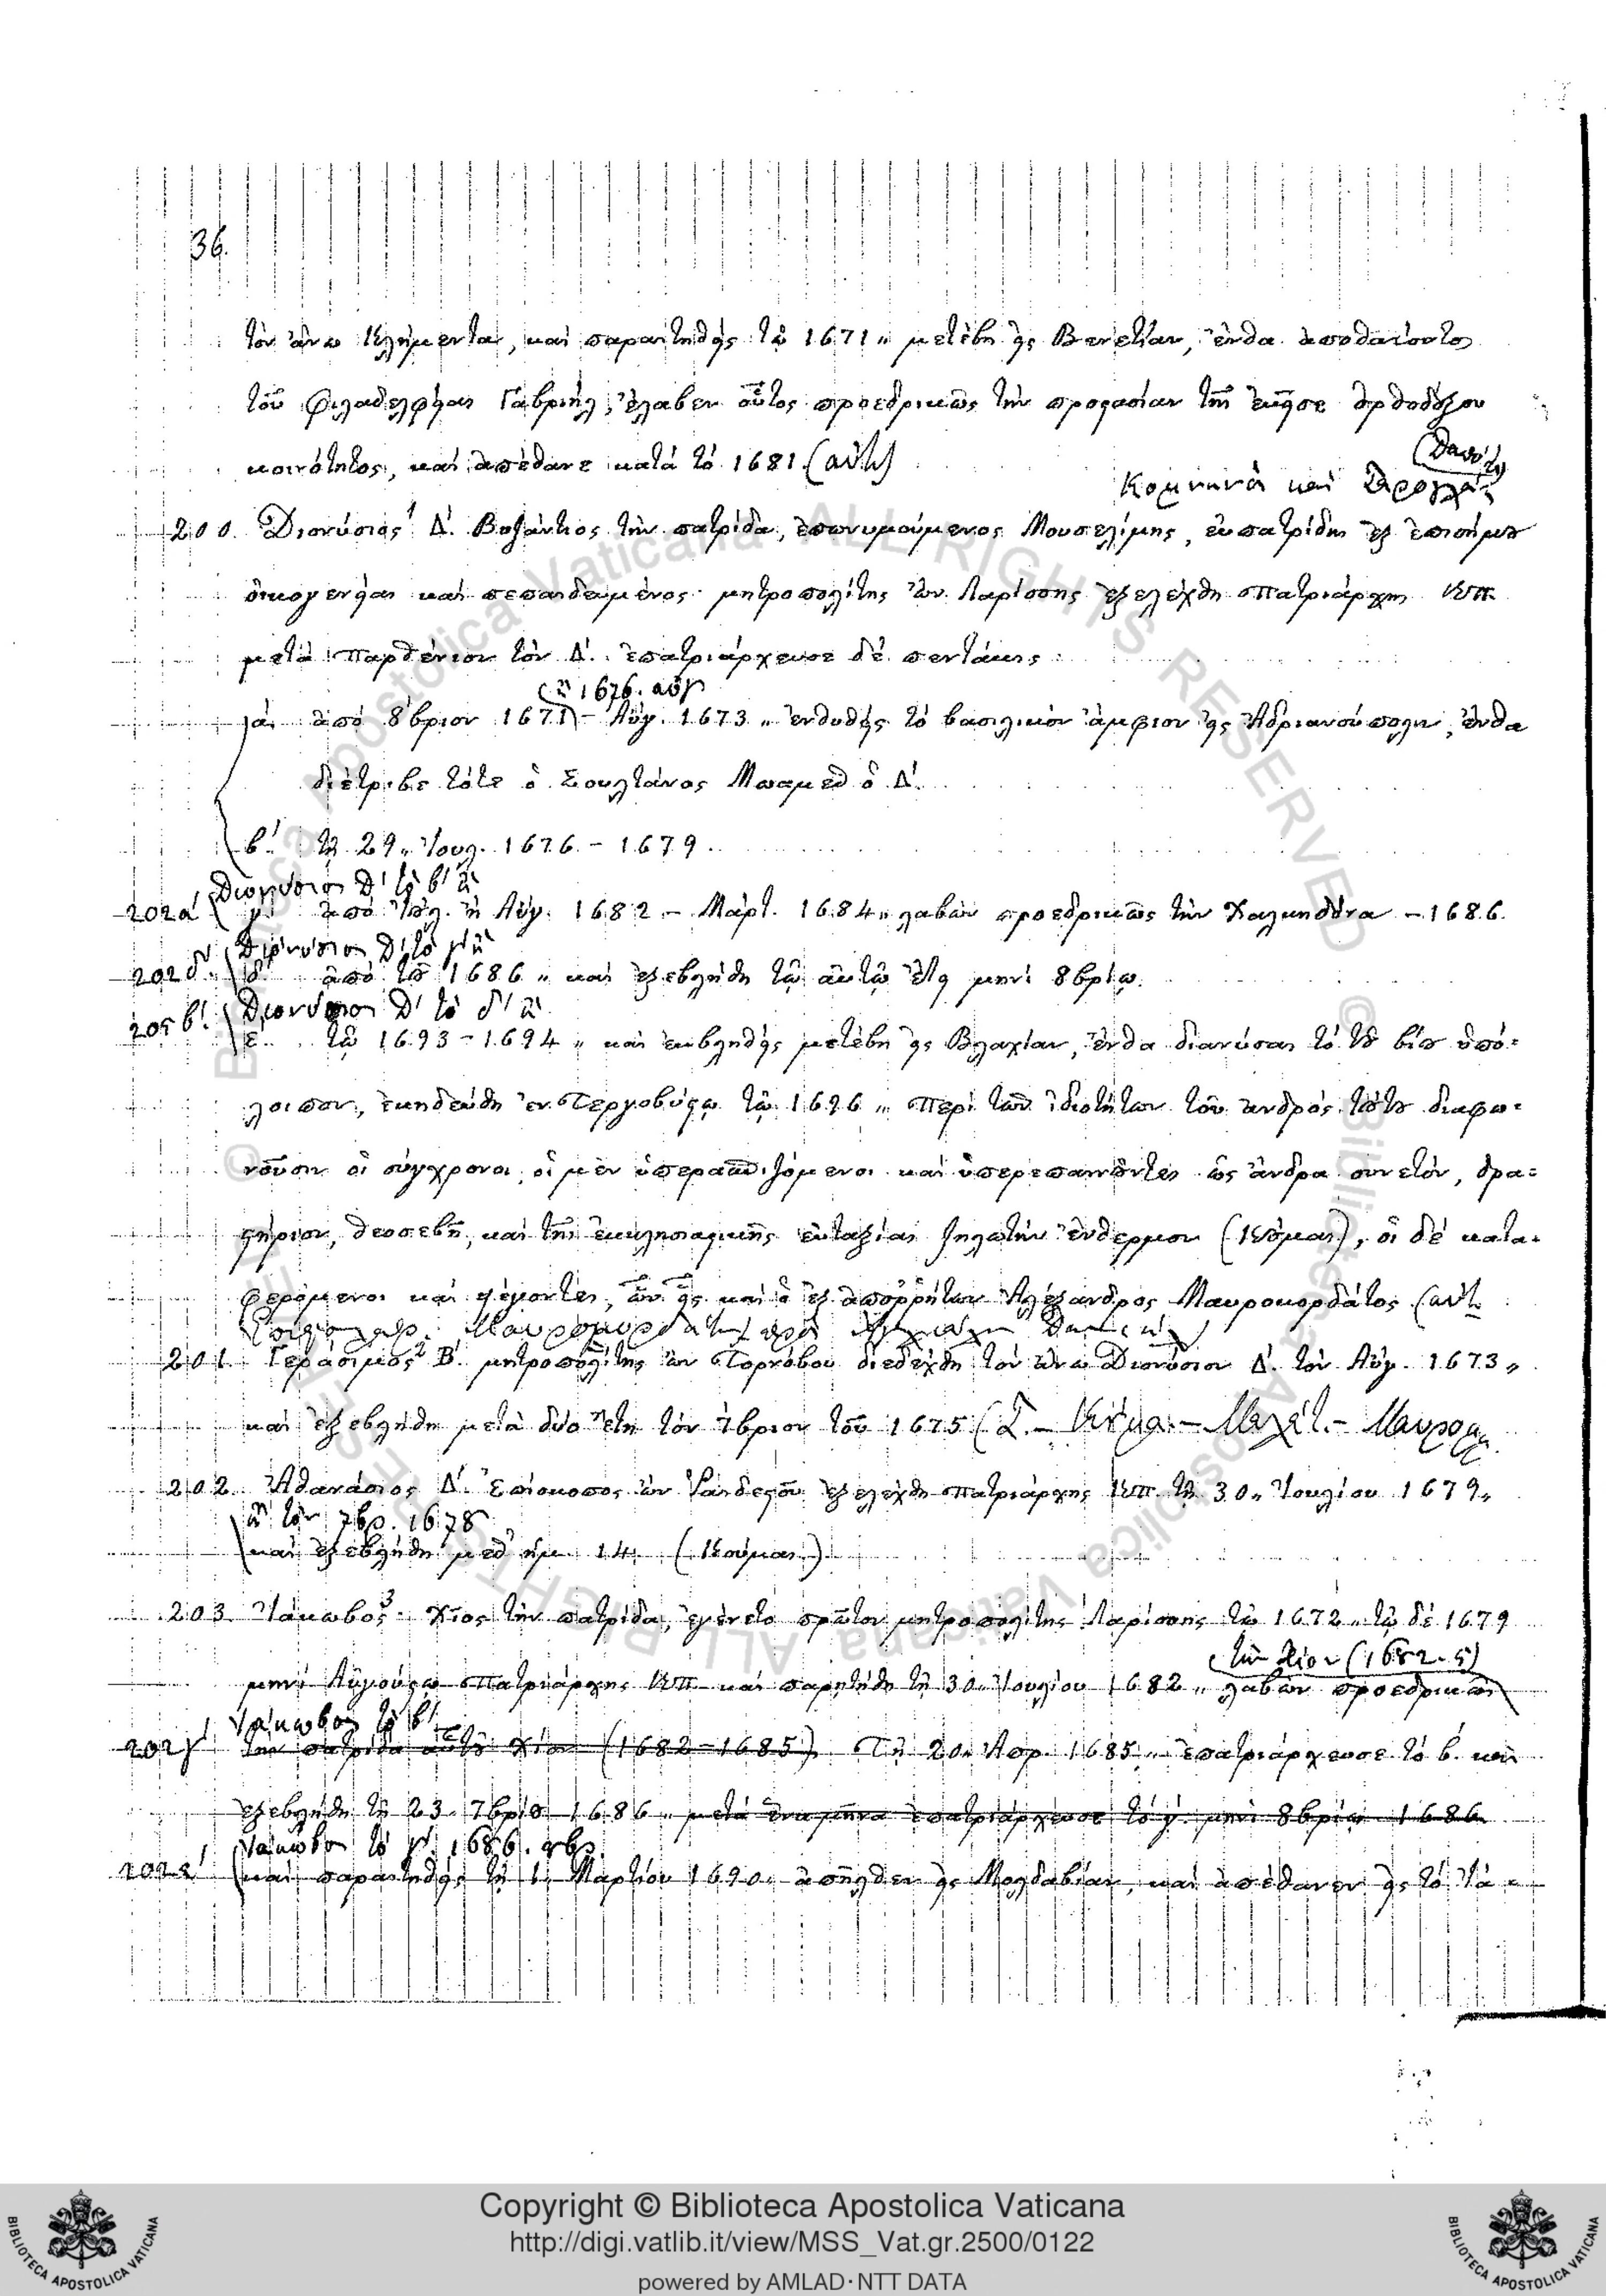 36.
τὸν ἄνω Κλήμεντα, καὶ παραιτηθεὶς τῷ 1671 „ μετέβη εἰς Βενετίαν, ἔνθα ἀποθανόντος
τοῦ Φιλαδελφείας Γαβριήλ, ἔλαβεν οὗτος προεδρικῶς τὴν προστασίαν τῆς ἐκεῖσε ὀρθοδόξου
κοινότητος, καὶ ἀπέθανε κατὰ τὸ 1681 (αὐτ)
Κομνηνὸς καὶ
200. Διονύσιος¹ Δ΄. Βυζάντιος τὴν πατρίδα, ἐπωνυμούμενος Μουσελίμης, εὐπατρίδης ἐξ ἐπισήμου
οἰκογενείας καὶ πεπαιδευμένος· μητροπολίτης ὢν Λαρίσσης ἐξελέχθη Πατριάρχης ΚΠ.
μετὰ Παρθένιον τὸν Δ΄. ἐπατριάρχευσε δὲ πεντάκις :
1676.
α΄. ἀπὸ 8βρίου 1671 – Αὐγ. 1673 „ ἐνδυθεὶς τὸ βασιλικὸν ἄμφιον εἰς Ἀδριανούπολιν, ἔνθα
διέτριβε τότε ὁ Σουλτάνος Μωαμεδ ὁ Δ΄.
β΄. τῇ 29 „ Ἰουλ. 1676 – 1679.
Διονύσιος Δ΄ τὸ β΄
202α΄ γ΄. ἀπὸ Ἰουλ. ἢ Αὐγ. 1682 – Μάρτ. 1684 „ λαβὼν προεδρικῶς τὴν Χαλκηδόνα – 1686.
Διονύσιος Δ΄ τὸ γ΄
202δ΄ δ΄. ἀπὸ τοῦ 1686 „ καὶ ἐξεβλήθη τῷ αὐτῷ ἔτει μηνὶ 8βρίῳ.
Διονύσιος Δ΄ τὸ δ΄
205β΄. ε΄. τῷ 1693 – 1694 „ καὶ ἐκβληθεὶς μετέβη εἰς Βλαχίαν, ἔνθα διανύσας τὸ τοῦ βίου ὑπό-
λοιπον, ἐκηδεύθη ἐν Τεργοβύστῳ τῷ 1696 „ Περὶ τῶν ἰδιοτήτων τοῦ ἀνδρὸς τούτου διαφω-
νοῦσιν οἱ σύγχρονοι, οἱ μὲν ὑπερασπιζόμενοι καὶ ὑπερεπαινοῦντες ὡς ἄνδρα συνετόν, δρα-
στήριον, θεοσεβῆ, καὶ τῆς ἐκκλησιαστικῆς εὐταξίας ζηλωτὴν ἔνθερμον (Κούμας), οἱ δὲ κατα-
φερόμενοι καὶ ψέγοντες, ὧν εἷς καὶ ὁ ἐξ ἀπορρήτων Ἀλέξανδρος Μαυροκορδάτος (αὐτ.
201. Γεράσιμος² Β΄. μητροπολίτης ὢν Τορνόβου διεδέχθη τὸν ἄνω Διονύσιον Δ΄. τὸν Αὐγ. 1673 „
καὶ ἐξεβλήθη μετὰ δύο ἔτη τὸν 7βριον τοῦ 1675 (Σ. – Κούμα. – Μελέτ. –
202. Ἀθανάσιος Δ΄. Ἐπίσκοπος ὢν Ῥαιδεστοῦ ἐξελέχθη πατριάρχης ΚΠ. τῇ 30 „ Ἰουλίου 1679 „
ἢ τὸν 7βρ. 1678
καὶ ἐξεβλήθη μεθ' ἡμ. 14. (Κούμας)
203. Ἰάκωβος³. Χῖος τὴν πατρίδα, ἐγένετο πρῶτον μητροπολίτης Λαρίσσης τῷ 1672 „ τῷ δὲ 1679
τὴν Χίον (1682-5)
μηνὶ Αὐγούστῳ Πατριάρχης ΚΠ. καὶ παρῃτήθη τῇ 30 „ Ἰουλίου 1682 „ λαβὼν προεδρικῶς
Ἰάκωβος τὸ β΄
202γ΄ τὴν πατρίδα αὐτοῦ Χίον (1682 – 1685). Τῇ 20 „ Ἀπρ. 1685 „ ἐπατριάρχευσε τὸ β΄. καὶ
ἐξεβλήθη τῇ 23 „ 7βρίου 1686 „ μετὰ ἕνα μῆνα ἐπατριάρχευσε τὸ γ΄. μηνὶ 8βρίῳ 1686
Ἰάκωβος τὸ γ΄. 1686.
202ε΄ καὶ παραιτηθεὶς τῇ 1 „ Μαρτίου 1690 „ ἀπῆλθεν εἰς Μολδαβίαν, καὶ ἀπέθανεν εἰς τὸ Ἰά-
Copyright © Biblioteca Apostolica Vaticana
http://digi.vatlib.it/view/MSS_Vat.gr.2500/0122
powered by AMLAD·NTT DATA